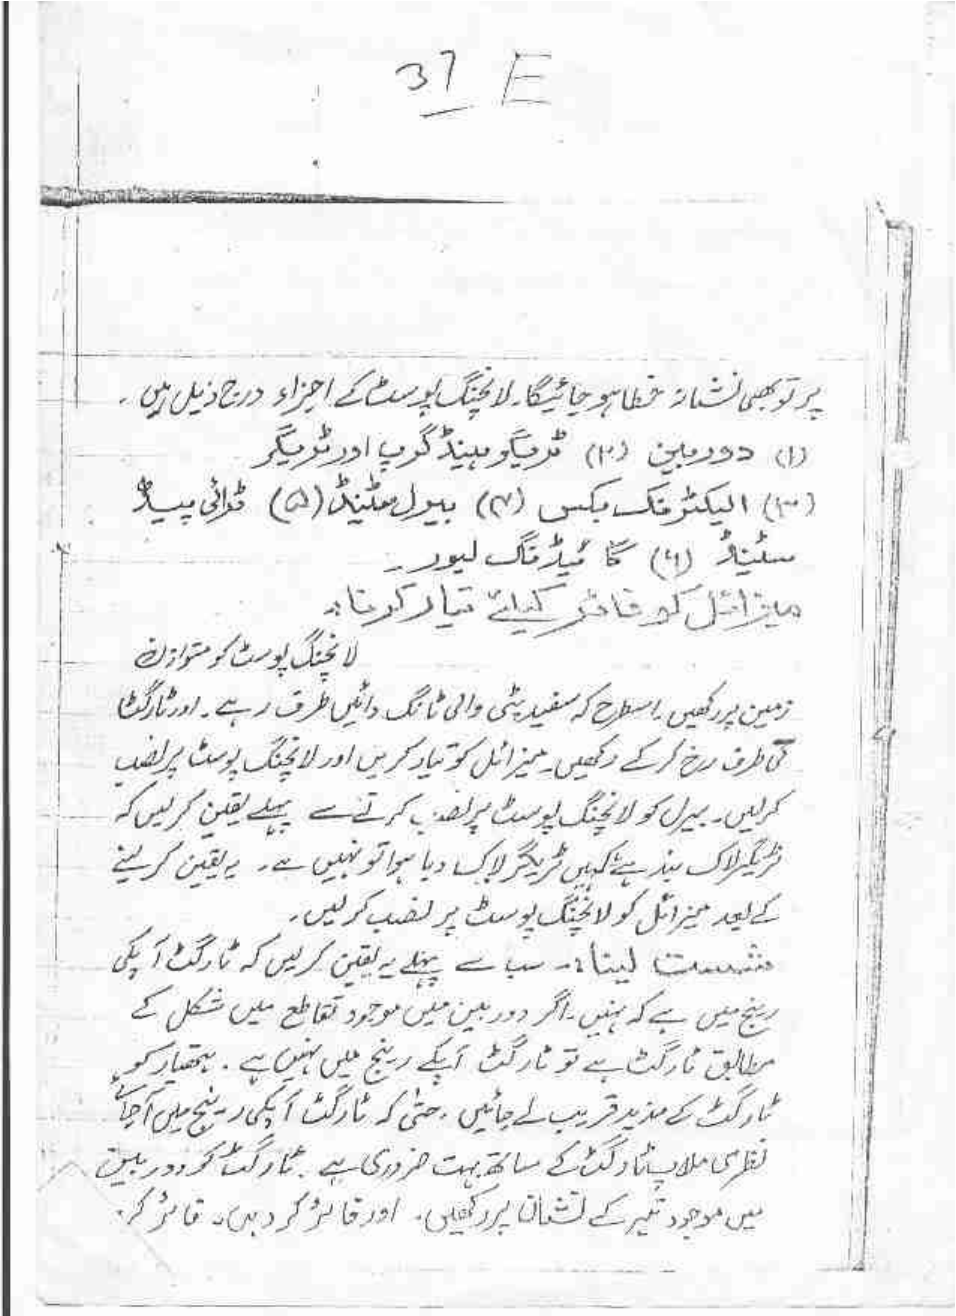 37 E
پر تو بھی نشانہ خطا ہو جائیگا۔ لانچنگ پوسٹ کے اجزاء درج ذیل ہیں۔
(۱) دوربین (۲) ٹریگر ہینڈ گرپ اور ٹریگر
(۳) الیکٹرنک بکس (۴) بیول سٹینڈ (۵) ٹرائی پیڈ
سٹینڈ (۶) گائیڈنگ لیور۔
میزائل کو فائر کیلئے تیار کرنا:۔
لانچنگ پوسٹ کو متوازن
زمین پر رکھیں۔ اسطرح کہ سفید پٹی والی ٹانگ دائیں طرف رہے۔ اور ٹارگٹ
کی طرف رخ کر کے رکھیں۔ میزائل کو تیار کریں اور لانچنگ پوسٹ پر نصب
کرلیں۔ بیرل کو لانچنگ پوسٹ پر نصب کرنے سے پہلے یقین کرلیں کہ
ٹریگر لاک بند ہے کہیں ٹریگر لاک دبا ہوا تو نہیں ہے۔ یہ یقین کر لینے
کے بعد میزائل کو لانچنگ پوسٹ پر نصب کرلیں۔
شست لینا:۔ سب سے پہلے یہ یقین کرلیں کہ ٹارگٹ آپکی
رینج میں ہے کہ نہیں۔ اگر دوربین میں موجود تقاطع میں شکل کے
مطابق ٹارگٹ ہے تو ٹارگٹ آپکے رینج میں نہیں ہے۔ ہتھیار کو
ٹارگٹ کے مزید قریب لے جائیں۔ حتیٰ کہ ٹارگٹ آپکی رینج میں آجائے
نظری ملاپ ٹارگٹ کے ساتھ بہت ضروری ہے۔ ٹارگٹ کو دوربین
میں موجود تیر کے نشان پر رکھیں۔ اور فائر کر دیں۔ فائر کر